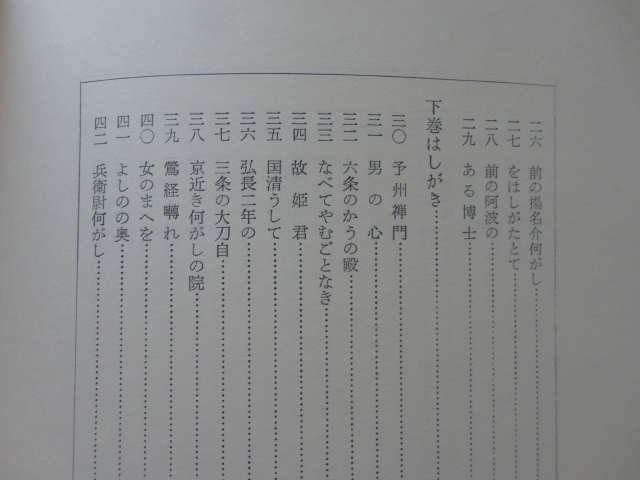 二六 前の揚名介何がし
二七 をはしがたとて
二八 前の阿波の
二九 ある博士
下巻はしがき
三〇 予州禅門
三一 男の心
三二 六条のかうの殿
三三 なべてやむごとなき
三四 故姫君
三五 国清うして
三六 弘長二年の
三七 三条の大刀自
三八 京近き何がしの院
三九 鶯経囀れ
四〇 女のまへを
四一 よしのの奥
四二 兵衛尉何がし